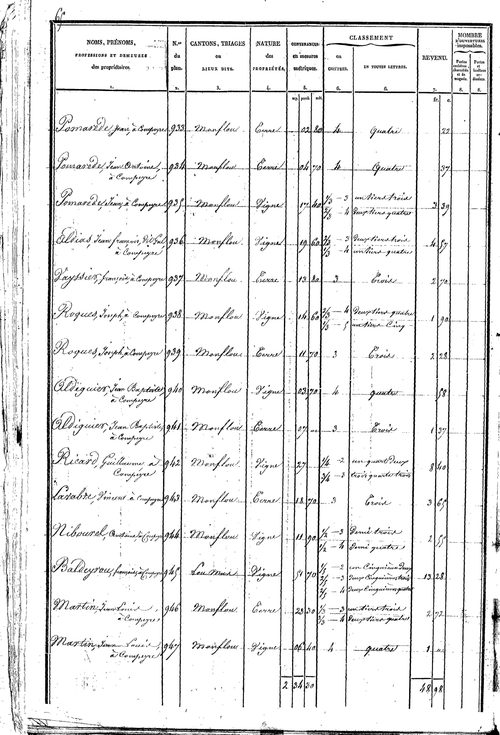 NOMS, PRÉNOMS, PROFESSIONS ET DEMEURES des propriétaires. | N.os du plan. | CANTONS, TRIAGES ou LIEUX DITS. | NATURE des PROPRIÉTÉS. | CONTENANCES en mesures métriques. | CLASSEMENT en CHIFFRES. | EN TOUTES LETTRES. | REVENU. | NOMBRE D'OUVERTURES imposables.
1. 2. 3. 4. 5. 6. 6. 7. 8. 8.
Pomarède, Jean, à Compeyre 933 Monflou Terre 02 80 4 Quatre 22
Pomarède, Jean Antoine, à Compeyre 934 Monflou Terre 04 70 4 Quatre 37
Pomarède, Jean, à Compeyre 935 Monflou Vigne 17 40 1/3 - 3 un tiers trois 3 39
2/3 - 4 Deux tiers quatre
Jean françois, à Compeyre 936 Monflou Vigne 19 60 2/3 - 3 Deux tiers trois 4 57
1/3 - 4 un tiers quatre
Vayssier, françois, à Compeyre 937 Monflou Terre 13 80 3 Trois 2 70
Roques, Joseph, à Compeyre 938 Monflou Vigne 14 60 2/3 - 4 Deux tiers quatre 1 90
1/3 - 5 un tiers Cinq
Roques, Joseph, à Compeyre 939 Monflou Terre 11 70 3 Trois 2 28
Aldiguier, Jean Baptiste, à Compeyre 940 Monflou Vigne 03 70 4 quatre 58
Aldiguier, Jean Baptiste, à Compeyre 941 Monflou Terre 07 " 3 Trois 1 37
Ricard Guillaume à Compeyre 942 Monflou Vigne 27 " 1/4 - 2 un quart Deux 8 40
3/4 - 3 trois quarts trois
Lavabre, Vincent à Compeyre 943 Monflou Terre 18 70 3 Trois 3 65
Nibourel, à Compeyre 944 Monflou Vigne 11 90 1/2 - 3 Demi trois 2 55
1/2 - 4 Demi quatre
Baldeyrou, françois, à Compeyre 945 Vigne 51 70 1/5 - 2 un Cinquième Deux 13 28
2/5 - 3 Deux Cinquièmes trois
2/5 - 4 Deux Cinquièmes quatre
Martin, Jean Louis, à Compeyre 946 Monflou Terre 23 30 1/3 - 3 un tiers trois 2 77
2/3 - 4 Deux tiers quatre
Martin, Jean Louis, à Compeyre 947 Monflou Vigne 06 40 4 quatre 1 "
2 34 30 48 98